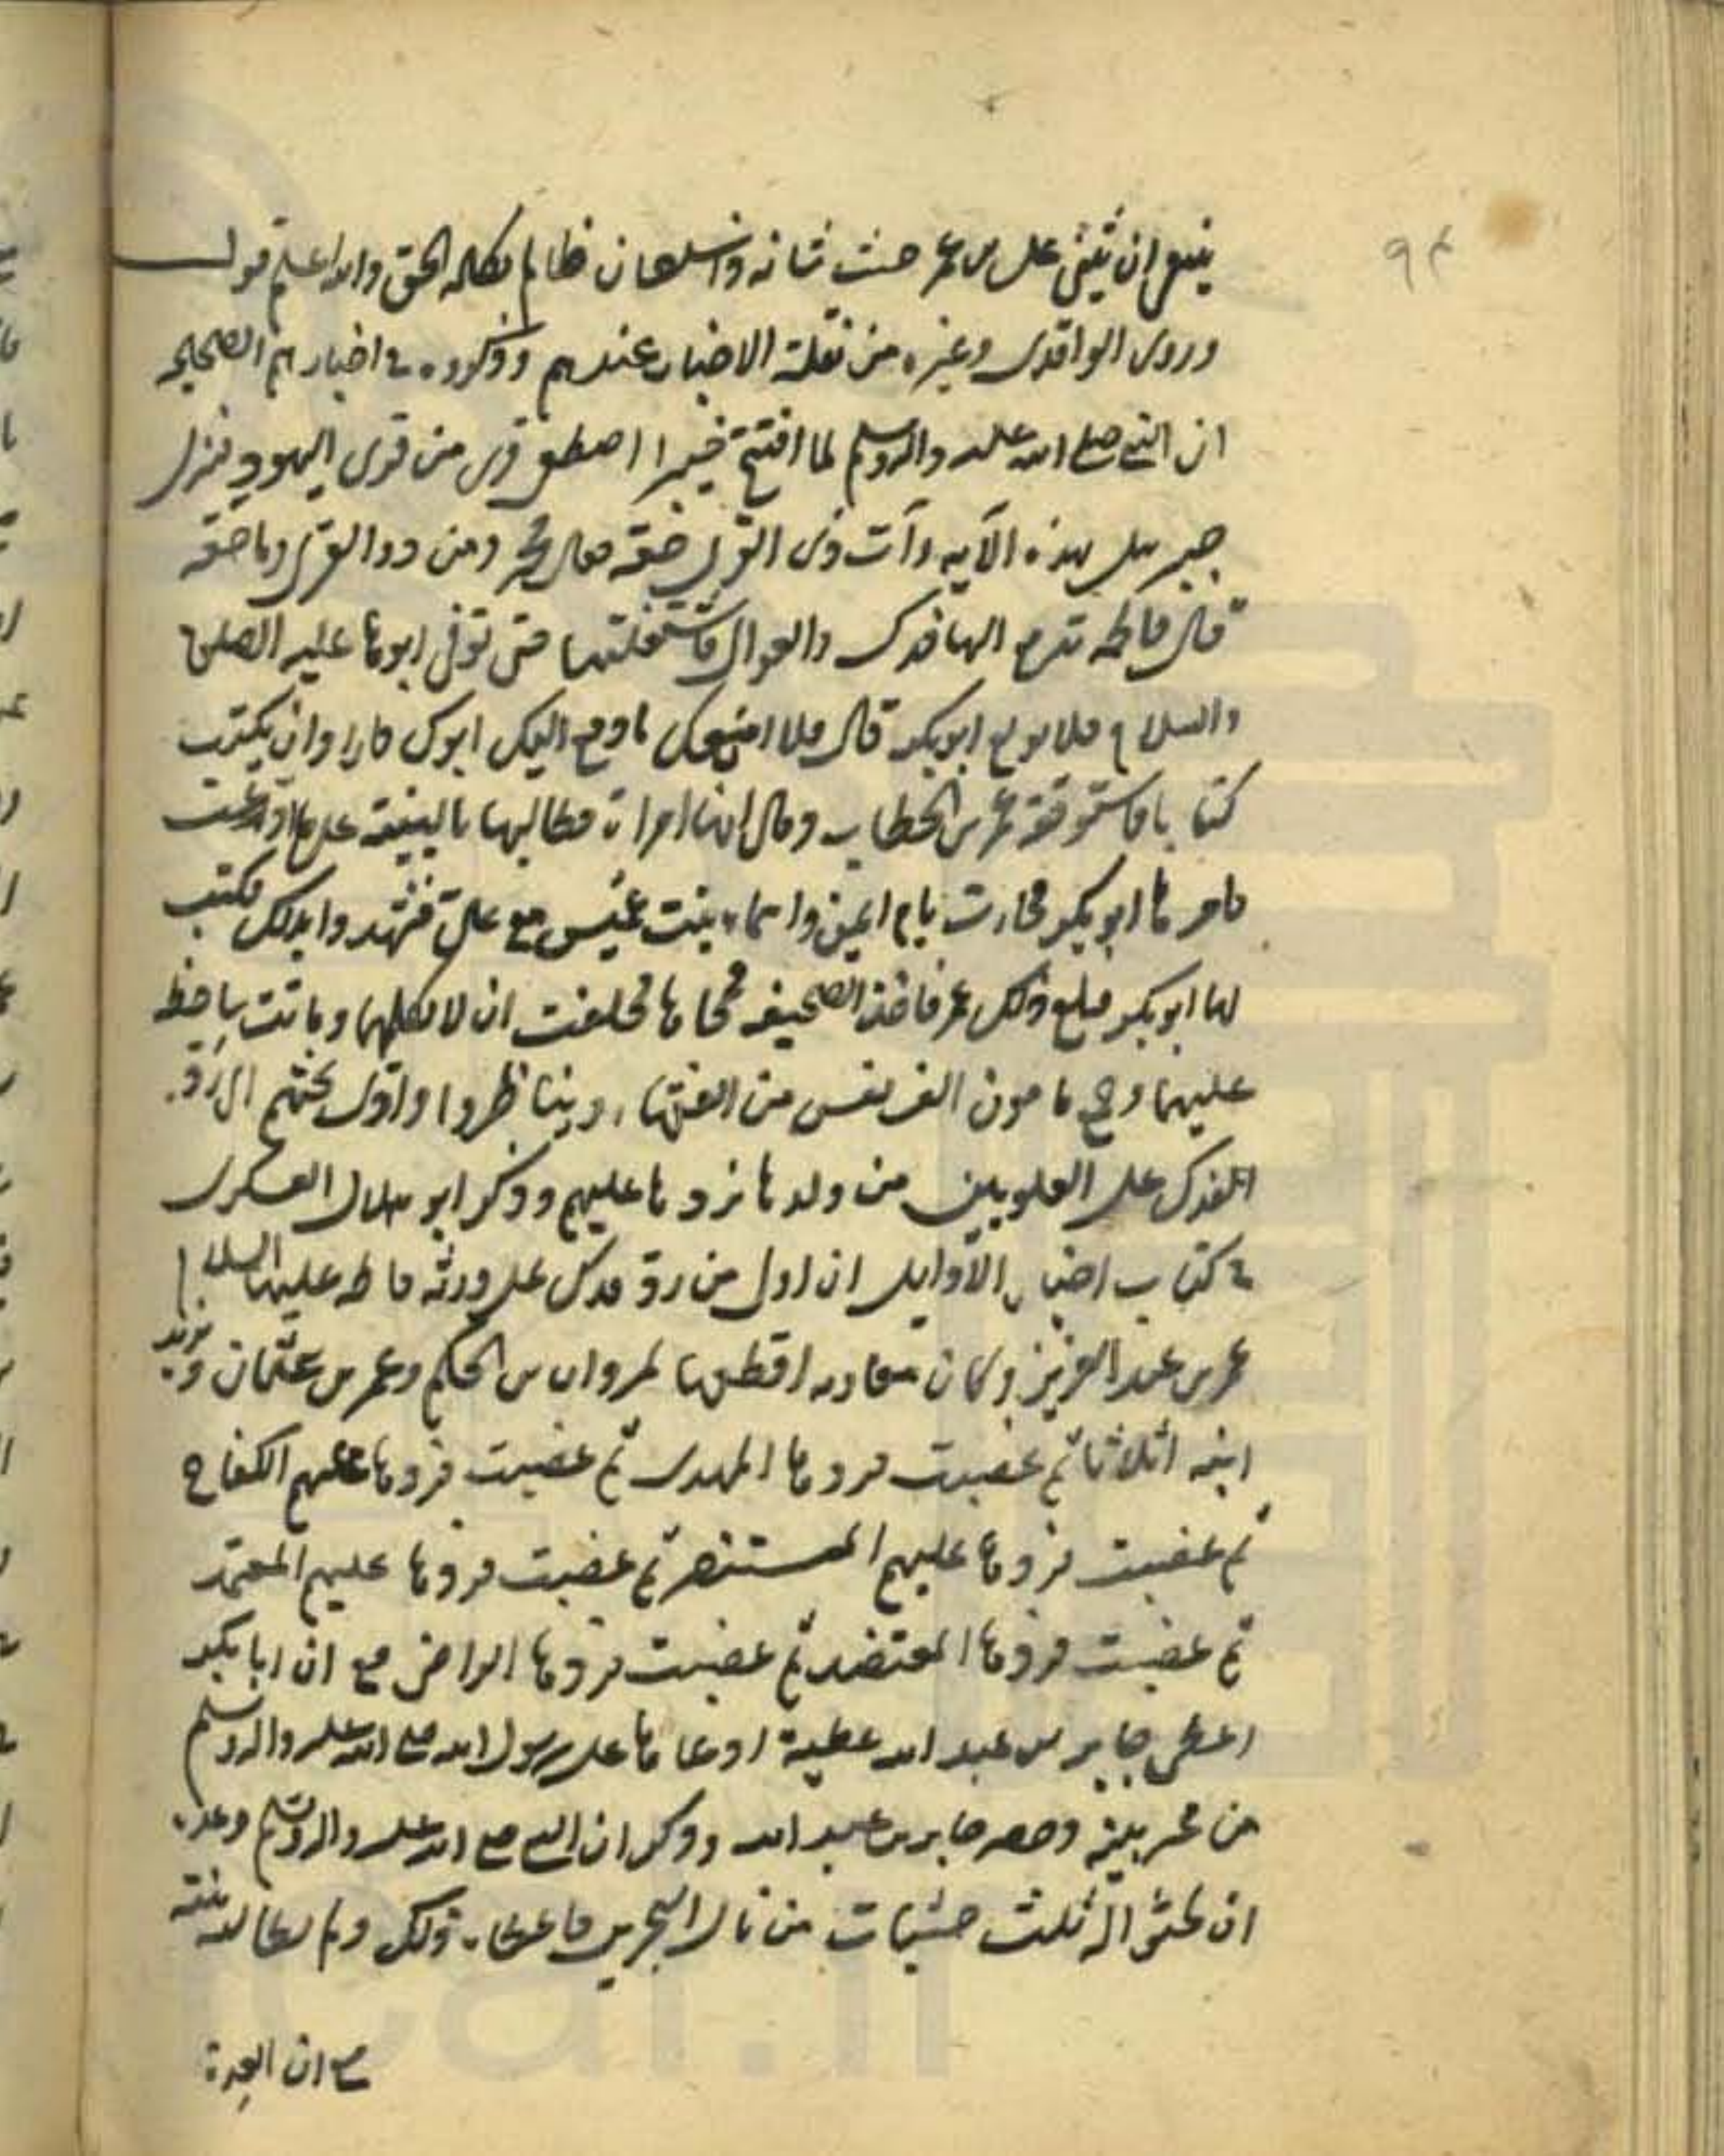 ٩٤
ينبغي ان يثنى على بن عمر حيث شانه وان سلطان ظالم بكلمه الحق والله اعلم قول
وروى الواقدى وغيره من نقلة الاخبار عندهم وذكروه في اخبارهم الصحيحه
ان النبي صلى الله عليه واله وسلم لما افتتح خيبر اصطفى قرى من قرى اليهود فنزل
جبرييل بهذه الآيه وآت ذى القربى حقه فقال محمد ومن ذو القربى وما حقه
قال فاطمه تدفع اليها فدك والعوالى فاستغلتها حتى توفى ابوها عليه الصلوة
والسلام فلما بويع ابوبكر قال فلا امنعك ما دفع اليك ابوك فاراد ان يكتب
كتابا فاستوقفه عمر بن الخطاب وقال انها امراة فطالبها بالبينة على ما ادعت
فامرها ابوبكر فجاءت بام ايمن واسماء بنت عميس مع على فشهدوا بذلك فكتب
لها ابوبكر فبلغ ذلك عمر فاخذ الصحيفه فمحاها فحلفت ان لا تكلمهما وماتت ساخطة
عليهما وجمع مامون الف نفس من الفقهاء وينناظروا وادى بحثهم الى رد
الفدك على العلويين من ولدها فردها عليهم وذكر ابو هلال العسكرى
في كتاب اخبار الاوايل ان اول من رد فدك على ورثه فاطمه عليها السلام
عمر بن عبد العزيز وكان معاويه اقطعها لمروان بن الحكم وعمر بن عثمان ويزيد
ابنه اثلاثا ثم غصبت فردها المهدى ثم غصبت فردها عليهم السفاح
ثم غصبت فردها عليهم المستنصر ثم غصبت فردها عليهم المعتمد
ثم غصبت فردها المعتضد ثم غصبت فردها الراضى مع ان ابابكر
اعطى جابر بن عبد الله عطية ادعاها على رسول الله صلى الله عليه واله وسلم
من غير بينة وحضر جابر بن عبد الله وذكر ان النبي صلى الله عليه واله وسلم وعده
ان يحثو اله ثلث حثيات من مال البحرين فاعطاه ذلك ولم يطالبه ببينة
مع ان العدة